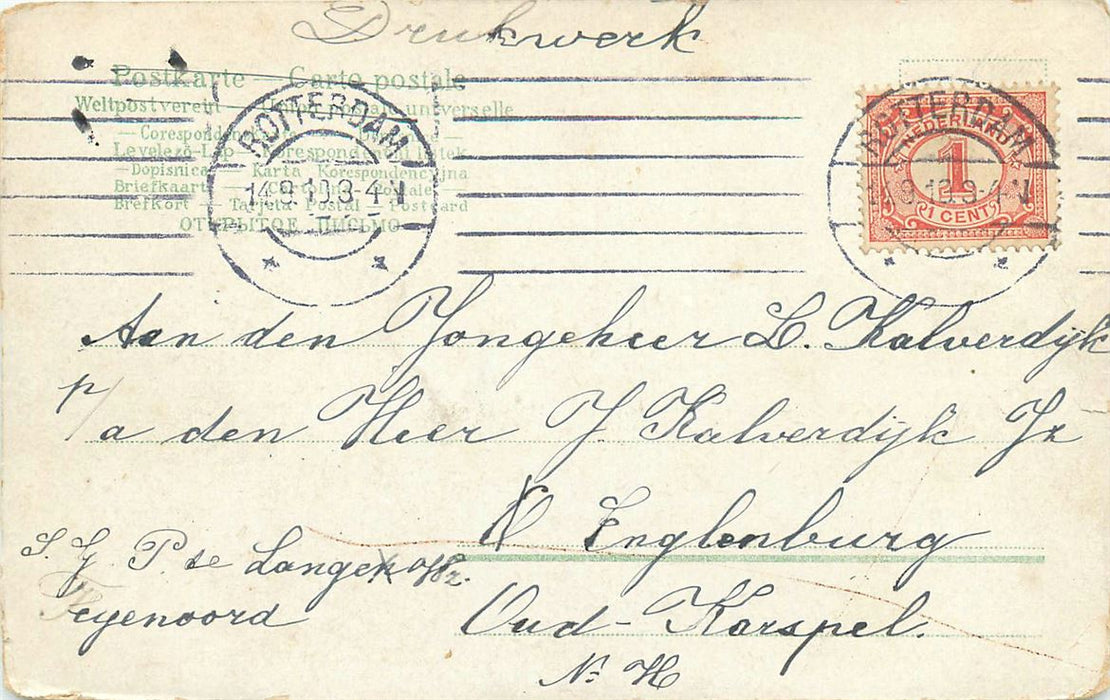 Drukwerk
Postkarte — Carte postale
Weltpostverein — universelle
— Corespondenz
Levelező-Lap — Korespondenční Lístek
— Dopisnica — Karta Korespondencyjna
Briefkaart —
Brefkort — Tarjeta Postal — Postcard
ОТКРЫТОЕ ПИСЬМО
ROTTERDAM
14.9.10.3-4N
ROTTERDAM
14.9.10.3-4N
NEDERLAND
1
1 CENT
Aan den Jongeheer L. Kalverdijk
p/a den Heer J. Kalverdijk Jz
Englenburg
Oud-Karspel.
N. H
P. de Lange
Feyenoord